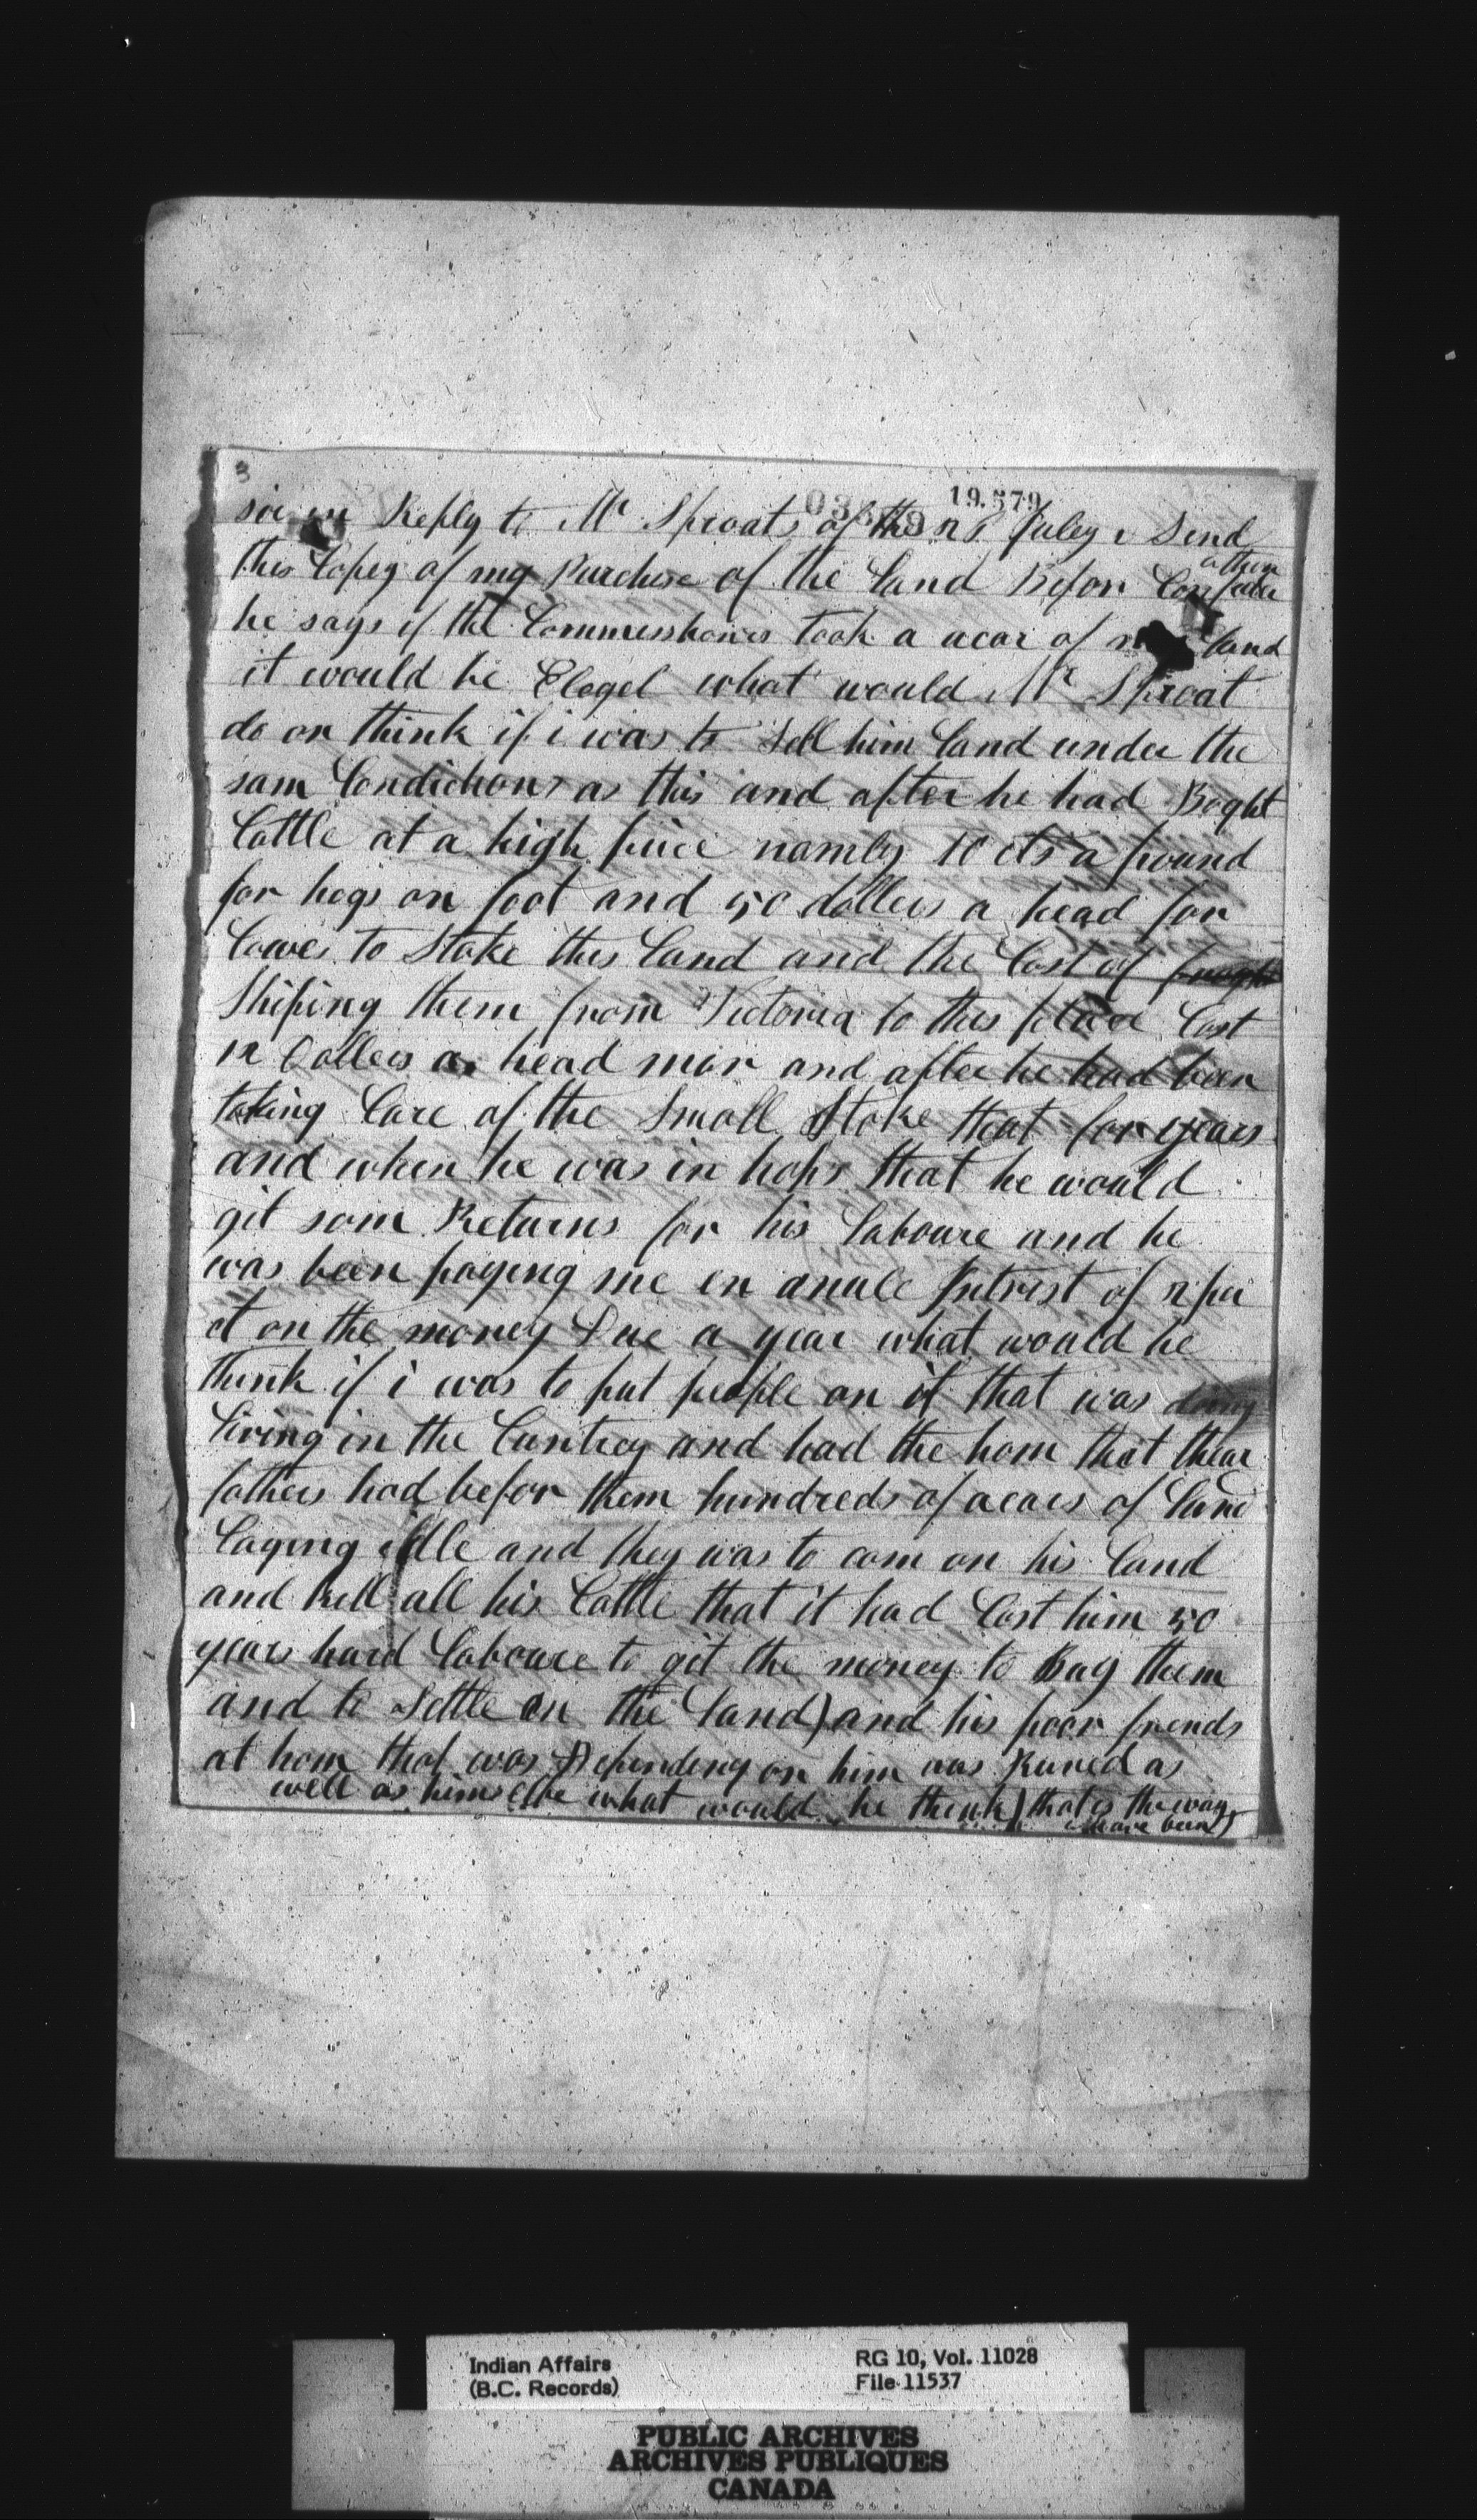 3
19.579
sir in Reply to Mr Sproats of the 12 Juley i Send
this Copey of my Purchise of the Land Befor Con
he says if the Commisshoners took a acar of my Land
it would be Elegel what would Mr Sproat
do or think if i was to Sell him Land under the
sam Condichons as this and after he had Boght
Cattle at a high price namly 10 cts a pound
for hogs on foot and 50 dollers a head for
Cowes to Stoke this Land and the Cost of
Shiping them from Victoria to this place Cost
12 Dollers a head mor and after he had been
taking Care of the Small Stoke that for years
and when he was in hops that he would
git som Returns for his Laboure and he
was been paying me en anule Intrist of 12 per
ct on the money Due a year what would he
think if i was to put people on it that was
Living in the Cuntrey and had the hom that thear
fathers had befor them hundreds of acars of Land
Laying idle and they was to com on his Land
and kill all his Cattle that it had Cost him 50
years hard Laboure to git the money to Buy them
and to Settle on the Land) and his poor frends
at hom that was Dependeng on him was Runed as
well as himselve what would he think) that is the way
i have been)
Indian Affairs
(B.C. Records)
RG 10, Vol. 11028
File 11537
PUBLIC ARCHIVES
ARCHIVES PUBLIQUES
CANADA